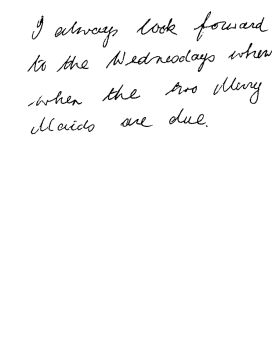 I always look forward
to the Wednesdays when
when the two Merry
Maids are due.